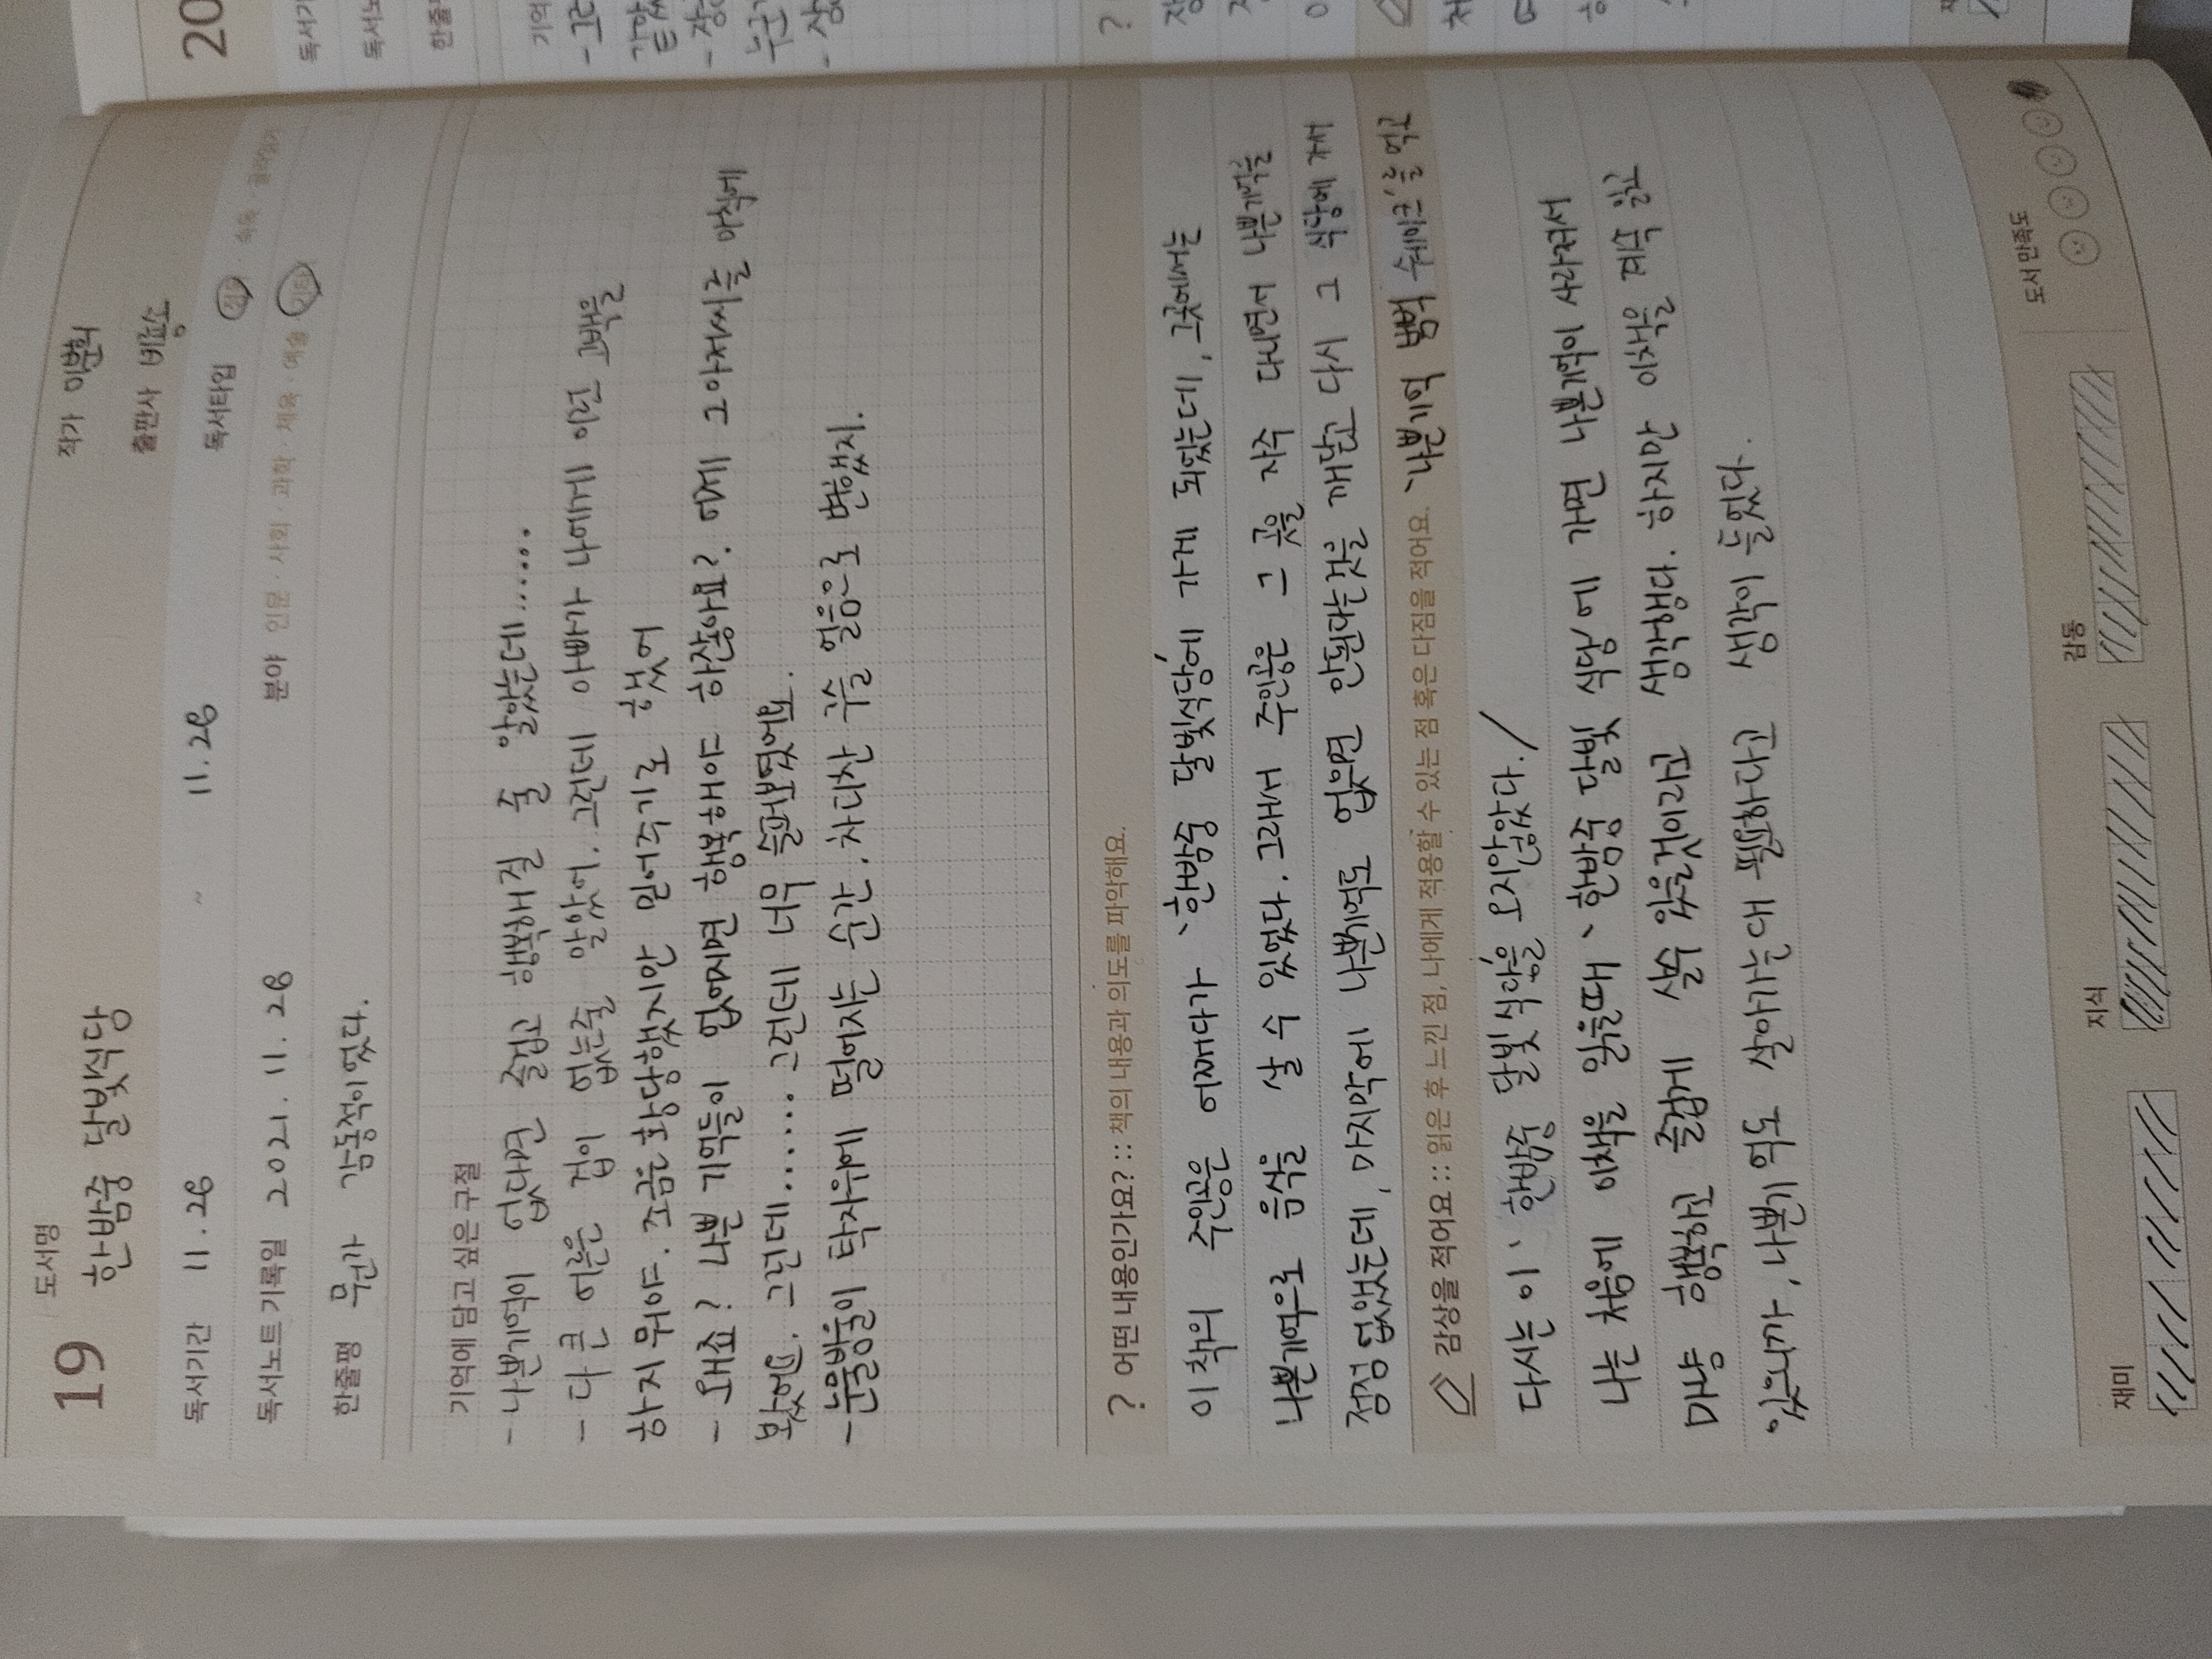 19
도서명
한밤중 달빛식당
작가 이분희
출판사 비룡소
독서기간 11.28 ~ 11.28
독서타입 정독 · 숙독 · 골라읽기
독서노트 기록일 2021. 11. 28
분야 인문 · 사회 · 과학 · 체육 · 예술 · 기타
한줄평 뭔가 감동적이었다.
기억에 담고 싶은 구절
- 나쁜기억이 없다면 즐겁고 행복해질 줄 알았는데......
- 다 큰 어른은 겁이 없는줄 알았어. 그런데 아빠가 나에게 이런 고백을
하지 뭐야. 조금은 황당했지만 믿어주기로 했어
- 왜죠? 나쁜 기억들이 없어지면 행복해야 하잖아요?. 어제 그 아저씨를 아침에
봤어요. 그런데...... 그런데 너무 슬퍼보였어요.
- 눈물방울이 탁자위에 떨어지는 순간, 차디찬 구슬 얼음으로 변했지.
? 어떤 내용인가요? :: 책의 내용과 의도를 파악해요.
이 책의 주인공은 어쩌다가 '한밤중 달빛식당'에 가게 되었는데, 그곳에서는
나쁜기억으로 음식을 살 수 있었다. 그래서 주인공은 그 곳을 자주 다니면서 나쁜기억을
점점 없앴는데, 마지막에 나쁜기억도 없으면 안된다는것을 깨닫고 다시 그 식당에 가서
감상을 적어요 :: 읽은 후 느낀 점, 나에게 적용할 수 있는 점 혹은 다짐을 적어요. '나쁜기억 범벅 쉐이크'를 먹고
다시는 이 '한밤중 달빛식당'을 오지않았다./
나는 처음에 이책을 읽을때 '한밤중 달빛 식당'에 가면 나쁜기억이 사라져서
마냥 행복하고 즐겁게 살수 있을것이라고 생각행다. 하지만 이책을 계속 읽고
있으니까, 나쁜기억도 살아가는대 필요하다고 생각이 들었다.
재미
지식
감동
도서 만족도
20